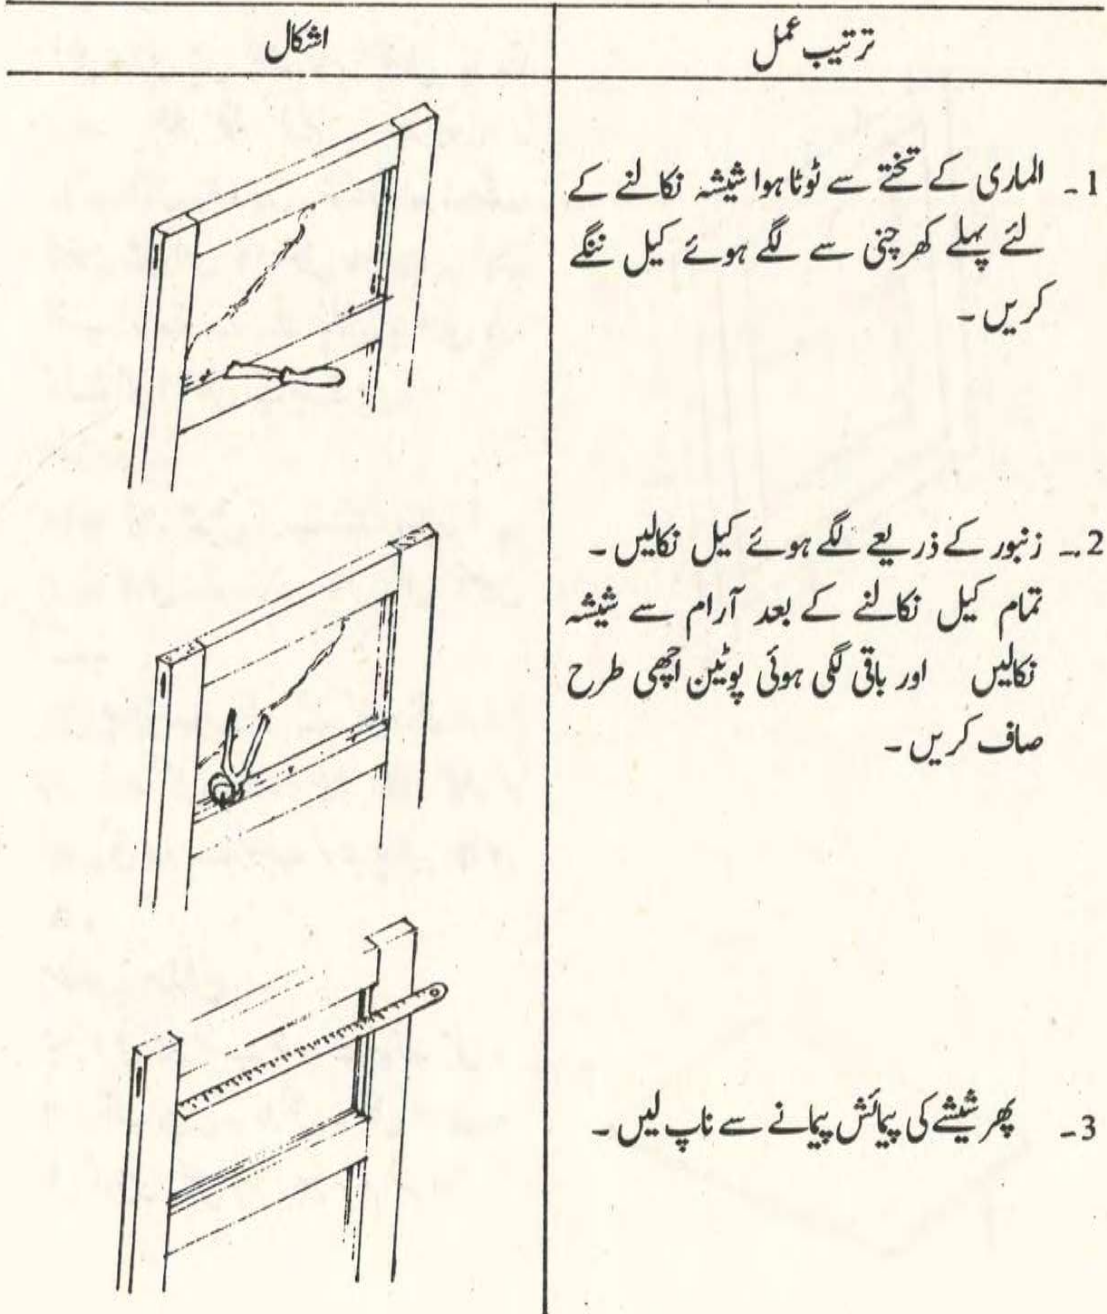 ترتیب عمل
اشکال
1۔ الماری کے تختے سے ٹوٹا ہوا شیشہ نکالنے کے
لئے پہلے کھرچنی سے لگے ہوئے کیل ننگے
کریں۔
2۔ زنبور کے ذریعے لگے ہوئے کیل نکالیں۔
تمام کیل نکالنے کے بعد آرام سے شیشہ
نکالیں اور باقی لگی ہوئی پوٹین اچھی طرح
صاف کریں۔
3۔ پھر شیشے کی پیمائش پیمانے سے ناپ لیں۔